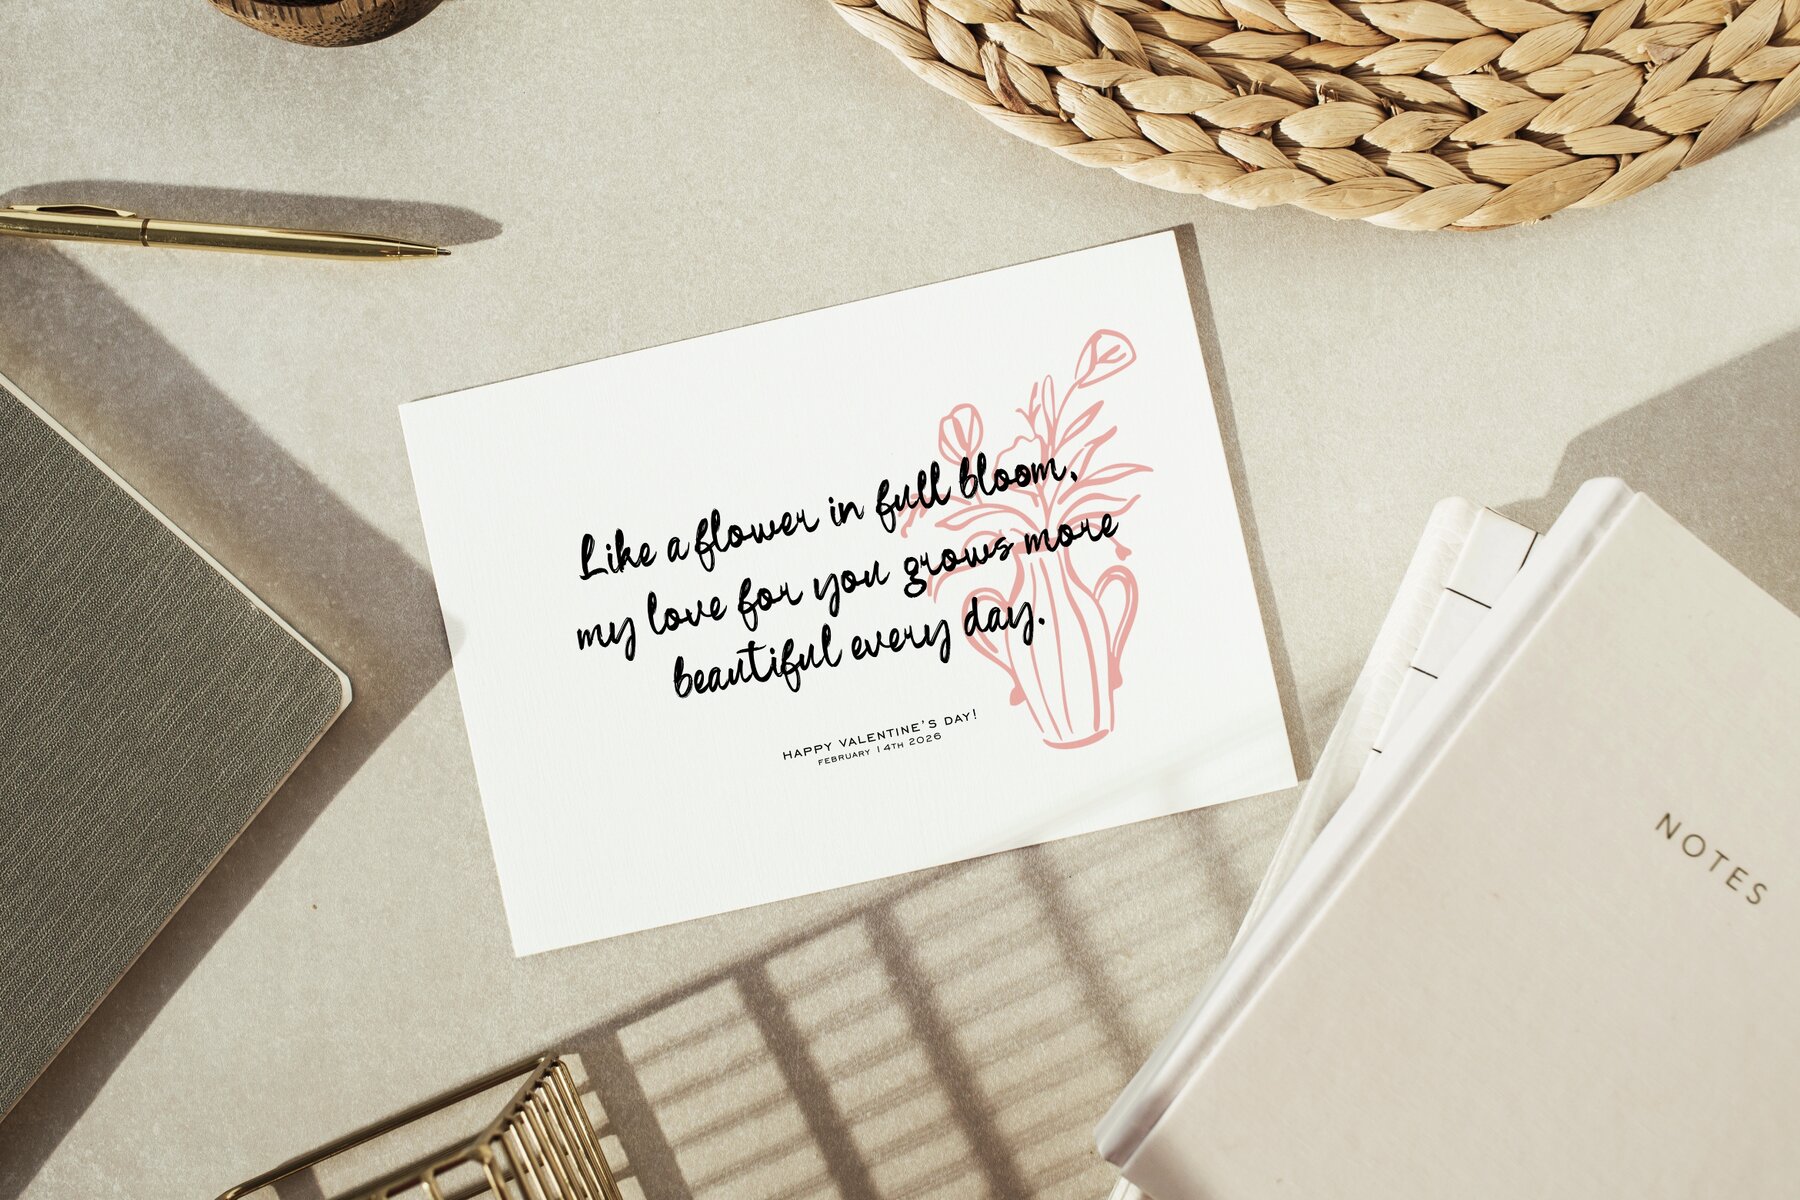 Like a flower in full bloom,
my love for you grows more
beautiful every day.
HAPPY VALENTINE'S DAY!
FEBRUARY 14TH 2026
NOTES